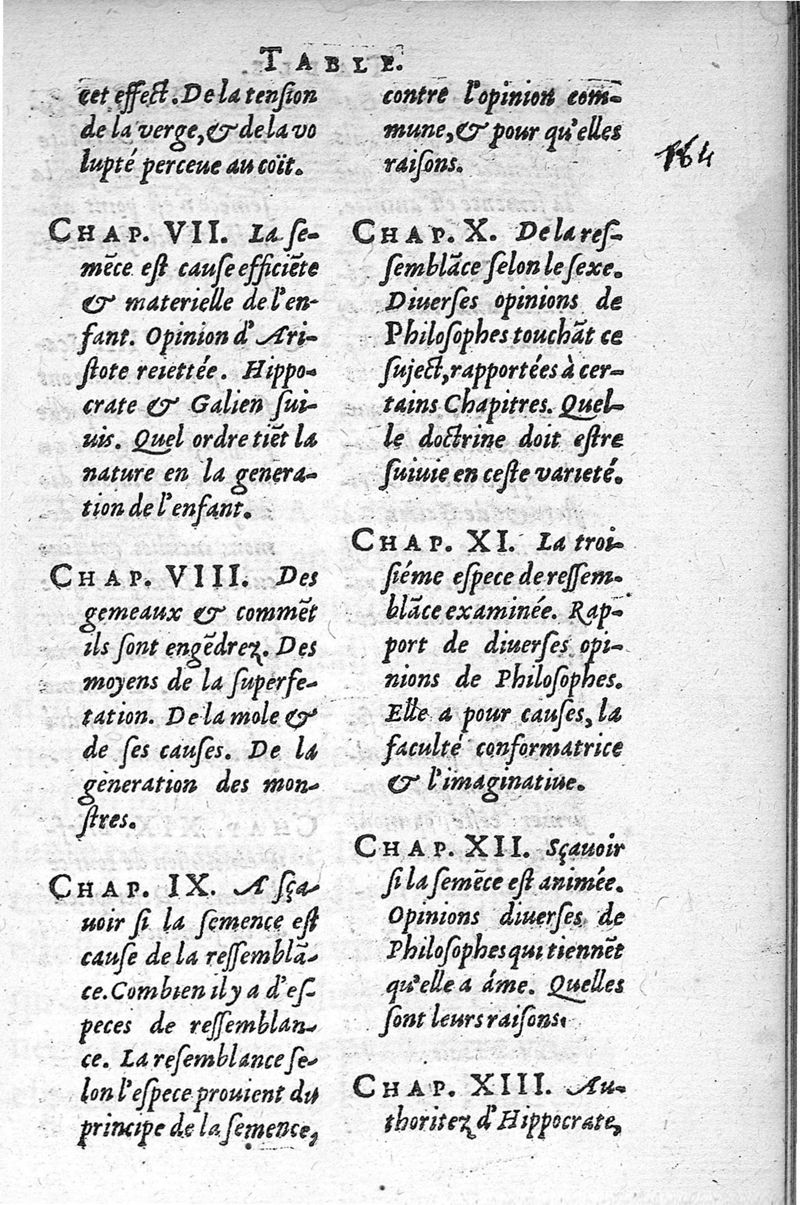 TABLE.
cet effect. De la tension
de la verge, & de la vo
lupté perceue au coït.
CHAP. VII. La se-
mēce est cause efficiēte
& materielle de l'en-
fant. Opinion d'Ari-
stote reiettée. Hippo-
crate & Galien sui-
uis. Quel ordre tiēt la
nature en la genera-
tion de l'enfant.
CHAP. VIII. Des
gemeaux & commēt
ils sont engēdrez. Des
moyens de la superfe-
tation. De la mole &
de ses causes. De la
generation des mon-
stres.
CHAP. IX. A sça-
uoir si la semence est
cause de la ressemblā-
ce. Combien il y a d'es-
peces de ressemblan-
ce. La resemblance se-
lon l'espece prouient du
principe de la semence,
contre l'opinion com-
mune, & pour qu'elles
raisons.
CHAP. X. De la res-
semblāce selon le sexe.
Diuerses opinions de
Philosophes touchāt ce
suject, rapportées à cer-
tains Chapitres. Quel-
le doctrine doit estre
suiuie en ceste varieté.
CHAP. XI. La troi-
siéme espece de ressem-
blāce examinée. Rap-
port de diuerses opi-
nions de Philosophes.
Elle a pour causes, la
faculté conformatrice
& l'imaginatiue.
CHAP. XII. Sçauoir
si la semēce est animée.
Opinions diuerses de
Philosophes qui tiennēt
qu'elle a áme. Quelles
sont leurs raisons.
CHAP. XIII. Au-
thoritez d'Hippocrate,
164